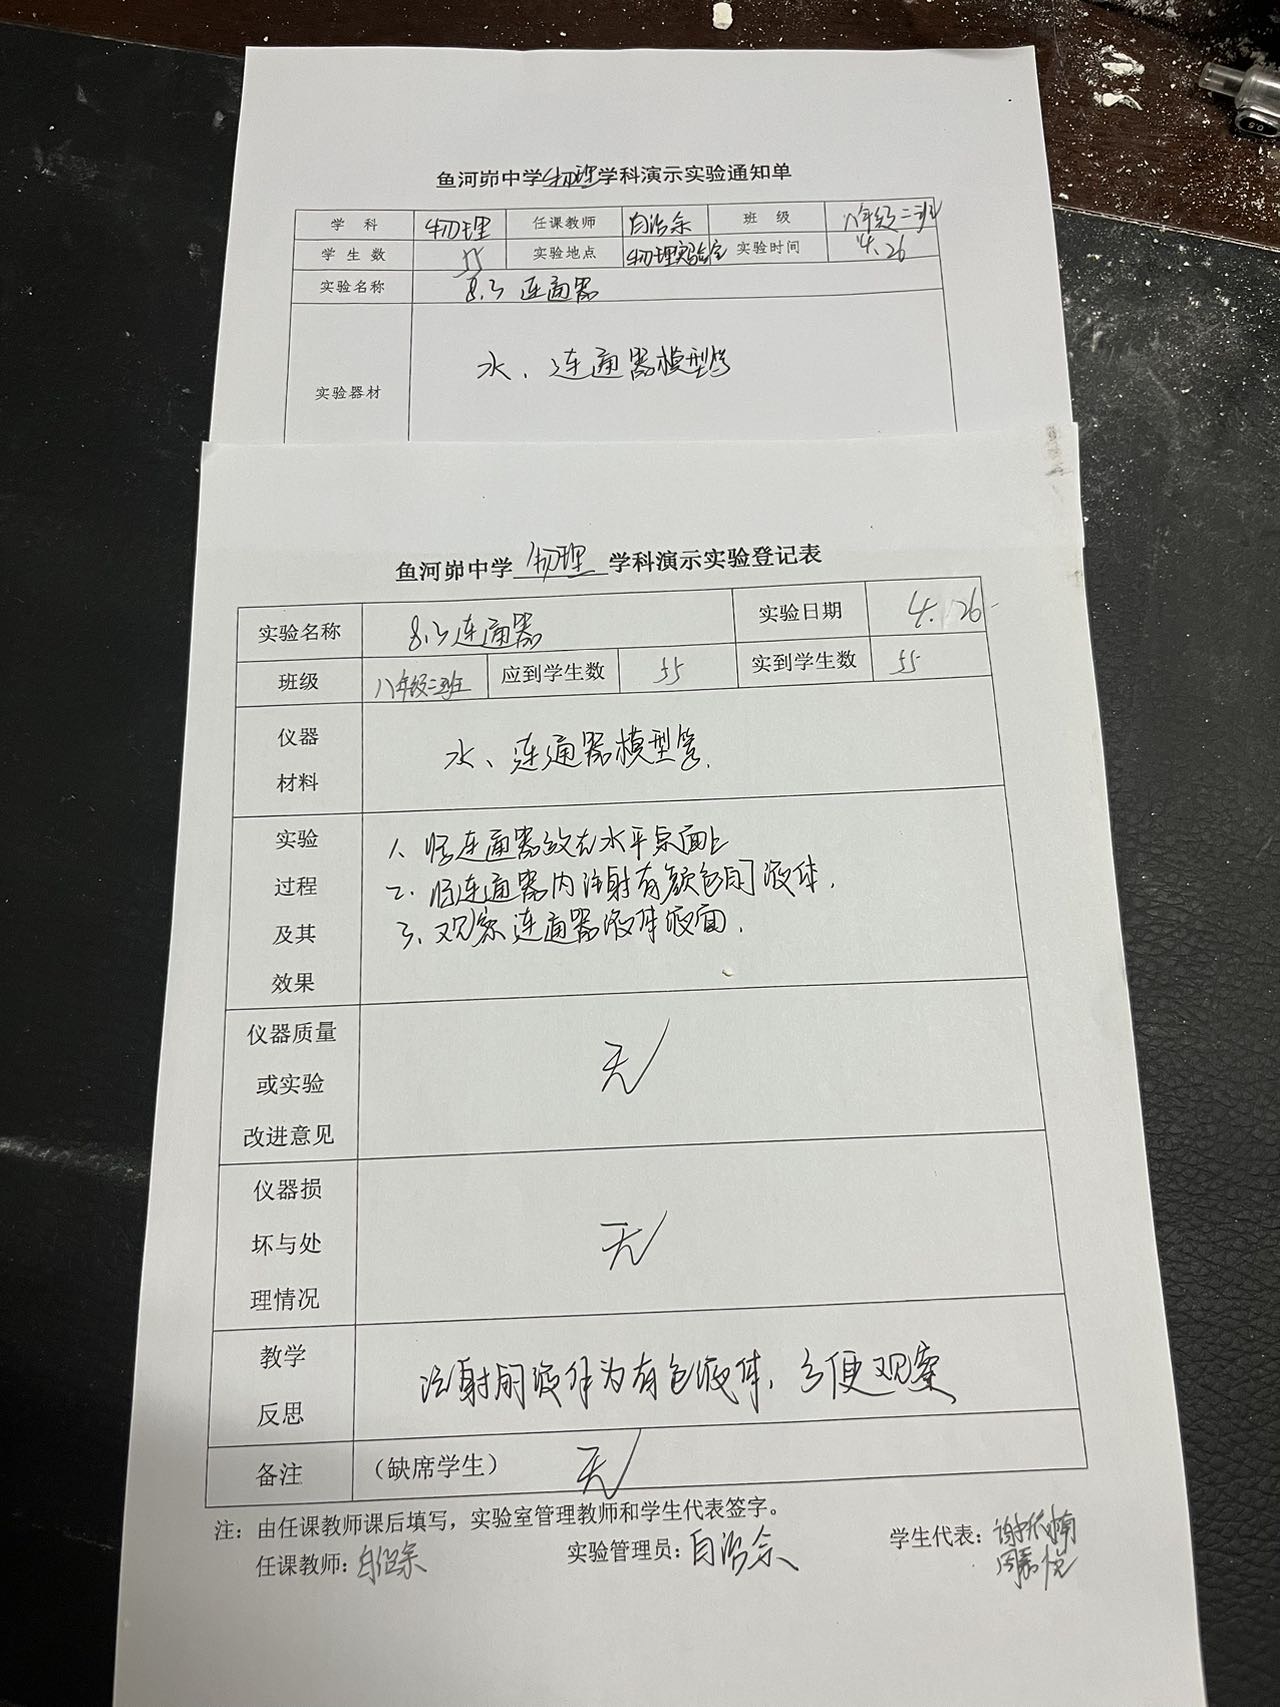 鱼河峁中学物理学科演示实验通知单
学 科 物理 任课教师 班 级 八年级二班
学 生 数 55 实验地点 物理实验室 实验时间 4.26
实验名称 8.3 连通器
实验器材 水、连通器模型管
鱼河峁中学 物理 学科演示实验登记表
实验名称 8.3 连通器 实验日期 4.26
班级 八年级二班 应到学生数 55 实到学生数 55
仪器材料 水、连通器模型管.
实验过程及其效果
1、将连通器放在水平桌面上
2、向连通器内注射有颜色的液体.
3、观察连通器液体液面.
仪器质量或实验改进意见 无
仪器损坏与处理情况 无
教学反思 注射的液体为有色液体,方便观察
备注 (缺席学生) 无
注:由任课教师课后填写,实验室管理教师和学生代表签字。
任课教师: 实验管理员: 学生代表:
0.5